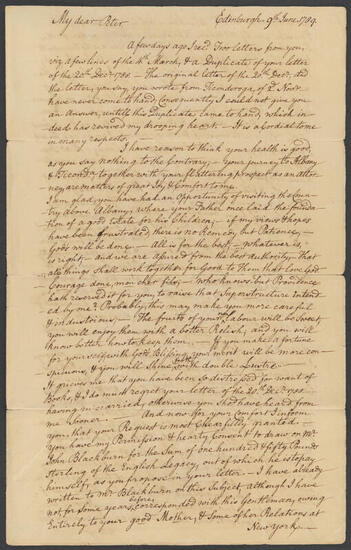 My dear Peter Edinburgh 9th June 1789.
A few days ago I recd. Two letters from you,
viz. a few lines of the 4th March, & a Duplicate of your letter
of the 20th Decr. 1788 — The original letter of the 20th Decr. and
the letter, you say, you wrote from Ticonderoga, of 2d Novr.
have never come to hand, Consequently I could not give you
an Answer, untill this Duplicate came to hand, which in-
deed has revived my drooping heart. — It is a Cordial to me
in many respects.
I have reason to think your health is good,
as you say nothing to the Contrary. — Your journey to Albany
& together with your flattering Prospect as an attor-
ney are matters of great Joy & Comfort to me.
I am glad, you have had an Opportunity of visiting the Coun-
try above Albany, where your Father once laid the founda-
tion of a good Estate for his Children; — if my views & hopes
have been frustrated, there is no Remedy but Patience, —
God's will be done — All is for the best, — Whatever is,
is right, — and we are assured from the best authority, that
all things shall work together for Good to them that love God —
Courage done, mon cher fils, — Who knows, but Providence
hath reserved it for you to raise that Superstructure Intend-
ed by me? Probably, this may make you more carefull
& industrious. — The fruits of your Labour will be Sweet,
you will enjoy them with a better Relish, and you will
know better how to keep them. — If you make a fortune
for yourself with God's Blessing, your merit will be more con-
spicuous, & you will Shine forth with double Lustre.
It grieves me that you have been so distressed for want of
Books, & I do much regret your letter of the 20th Decr. 1788
having miscarried, otherwise you Shou'd have heard from
me Sooner. And now for your Comfort I inform
you, that your Request is most Chearfully granted. —
You have my Permission & hearty Consent to draw on Mr.
John Blackburn for the Sum of one hundred & fifty Pounds
Sterling of the English Legacy, out of which he is to pay
himself, as you propose in your letter. — I have already
written to Mr. Blackburn on this Subject, although I have
not for some years before corresponded with this Gentleman, owing
Entirely to your good Mother, & Some other Relations at
New York.